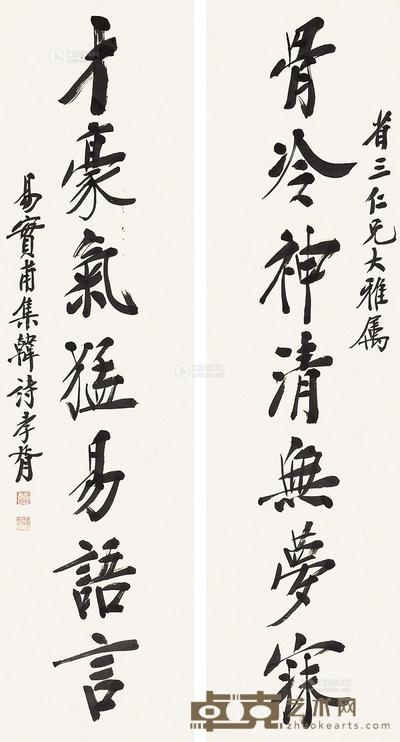 省三仁兄大雅属
骨冷神清無夢寐
才豪氣猛易語言
易實甫集韓詩孝胥
卓克艺术网
zhuokearts.com